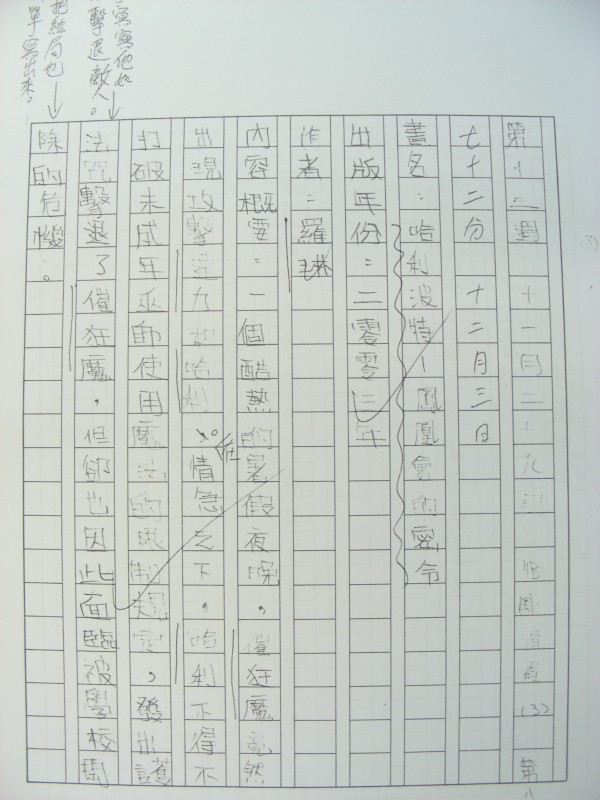 第十二週 十一月二十八 第八
七十二分 十二月三日
書名：哈利波特－鳳凰會的密令
出版年份：二零零三年
作者：羅琳
內容概要：一個酷熱的暑假夜晚，催狂魔竟然
出現攻擊哈利。在情急之下，哈利不得不
打破未成年巫師使用魔法的限制規定，發出護
法咒擊退了催狂魔，但卻也因此面臨被學校開
除的危機。
寫寫他如
擊退敵人。
把結局也
單寫出來。